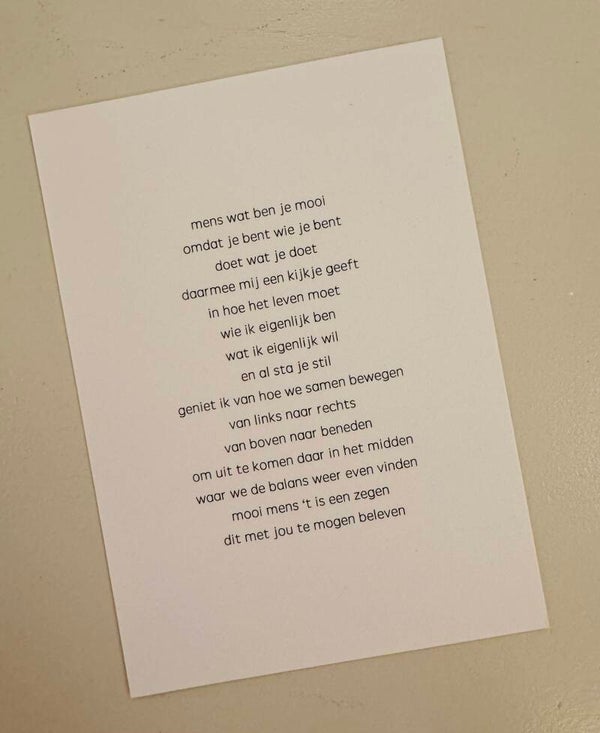 mens wat ben je mooi
omdat je bent wie je bent
doet wat je doet
daarmee mij een kijkje geeft
in hoe het leven moet
wie ik eigenlijk ben
wat ik eigenlijk wil
en al sta je stil
geniet ik van hoe we samen bewegen
van links naar rechts
van boven naar beneden
om uit te komen daar in het midden
waar we de balans weer even vinden
mooi mens ‘t is een zegen
dit met jou te mogen beleven